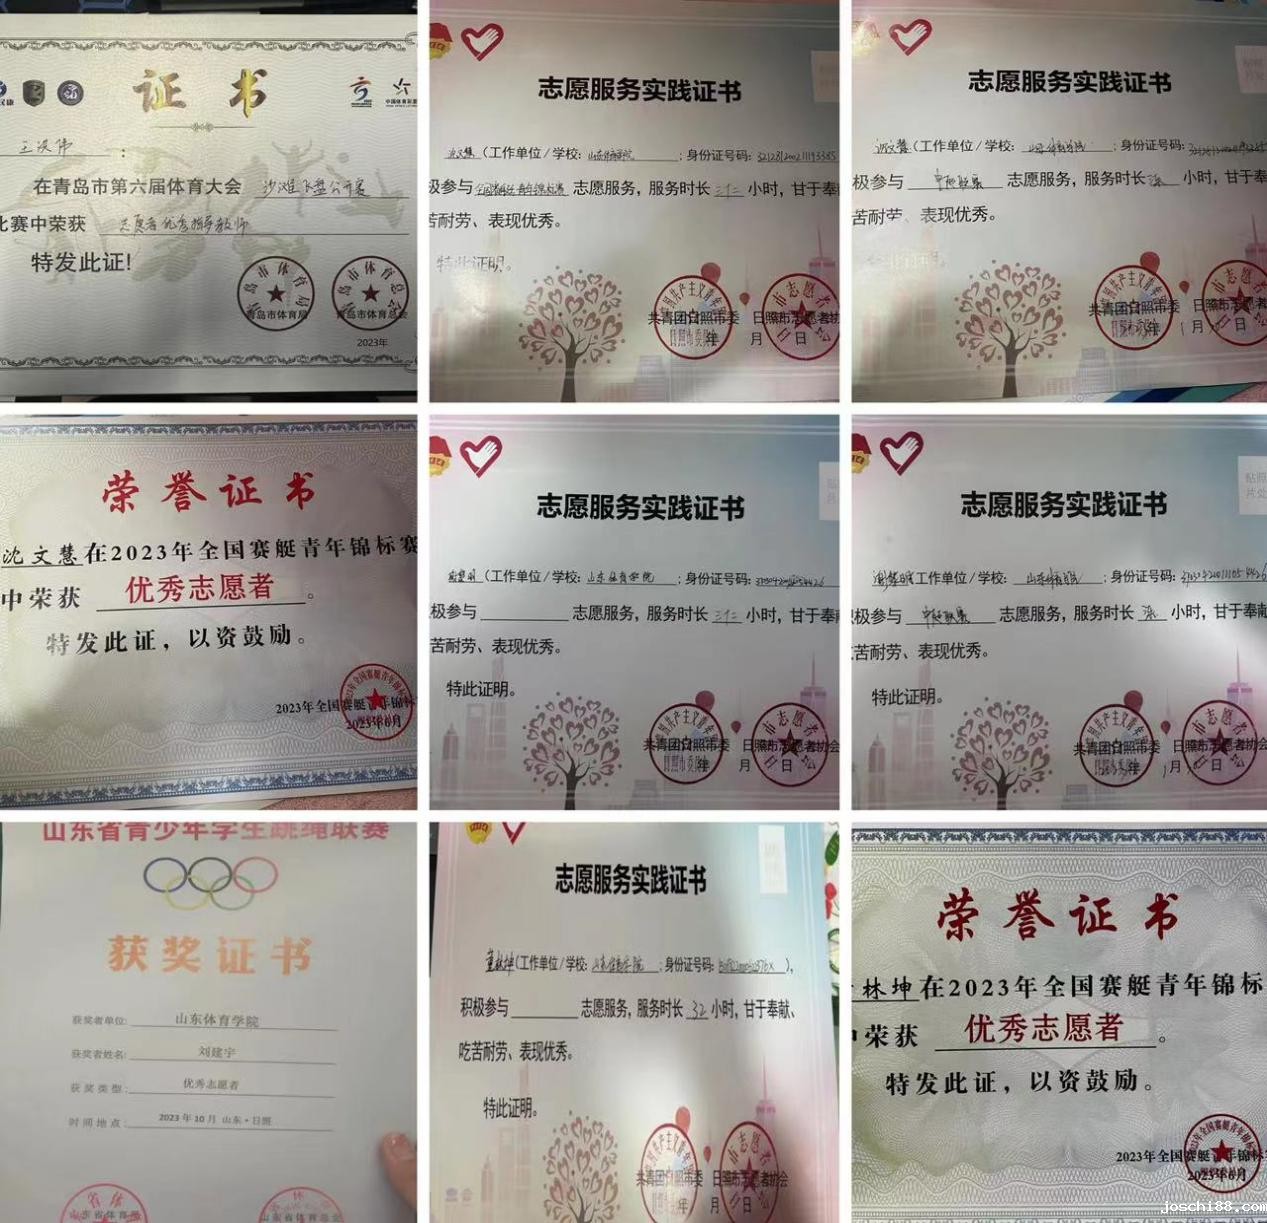 证书
王汉伟 :
在青岛市第六届体育大会 沙滩飞盘公开赛
比赛中荣获 志愿者优秀指导教师
特发此证!
青岛市体育局
青岛市体育总会
2023年
志愿服务实践证书
沈文慧(工作单位/学校: 山东体育学院 ;身份证号码:
极参与 志愿服务,服务时长 三十二 小时,甘于奉
苦耐劳、表现优秀。
特此证明。
共青团日照市委 日照市志愿者协
年 月 日
志愿服务实践证书
沈文慧(工作单位/学校: 山东体育学院 ;身份证号码:
极参与 志愿服务,服务时长 小时,甘于奉
苦耐劳、表现优秀。
共青团日照市委 日照市志愿者协会
年 月 日
荣誉证书
沈文慧在2023年全国赛艇青年锦标赛
中荣获 优秀志愿者 。
特发此证,以资鼓励。
2023年全国赛艇青年锦标
2023年6月
志愿服务实践证书
(工作单位/学校: 山东体育学院 ;身份证号码:
极参与 志愿服务,服务时长 三十二 小时,甘于奉
苦耐劳、表现优秀。
特此证明。
共青团日照市委 日照市志愿者协会
年 月 日
志愿服务实践证书
工作单位/学校: 山东体育学院 ;身份证号码:
极参与 志愿服务,服务时长 小时,甘于奉
苦耐劳、表现优秀。
特此证明。
共青团日照市委 日照市志愿者协会
年 月 日
山东省青少年学生跳绳联赛
获奖证书
获奖者单位: 山东体育学院
获奖者姓名: 刘建宇
获奖类型: 优秀志愿者
时间地点: 2023年10月 山东·日照
山东省体育局
志愿服务实践证书
(工作单位/学校: 山东体育学院 ;身份证号码: ),
积极参与 志愿服务,服务时长 32 小时,甘于奉献、
吃苦耐劳、表现优秀。
特此证明。
共青团日照市委 日照市志愿者协会
年 月 日
荣誉证书
林坤在2023年全国赛艇青年锦标
中荣获 优秀志愿者 。
特发此证,以资鼓励。
2023年全国赛艇青年锦标
2023年6月
joschi88.com